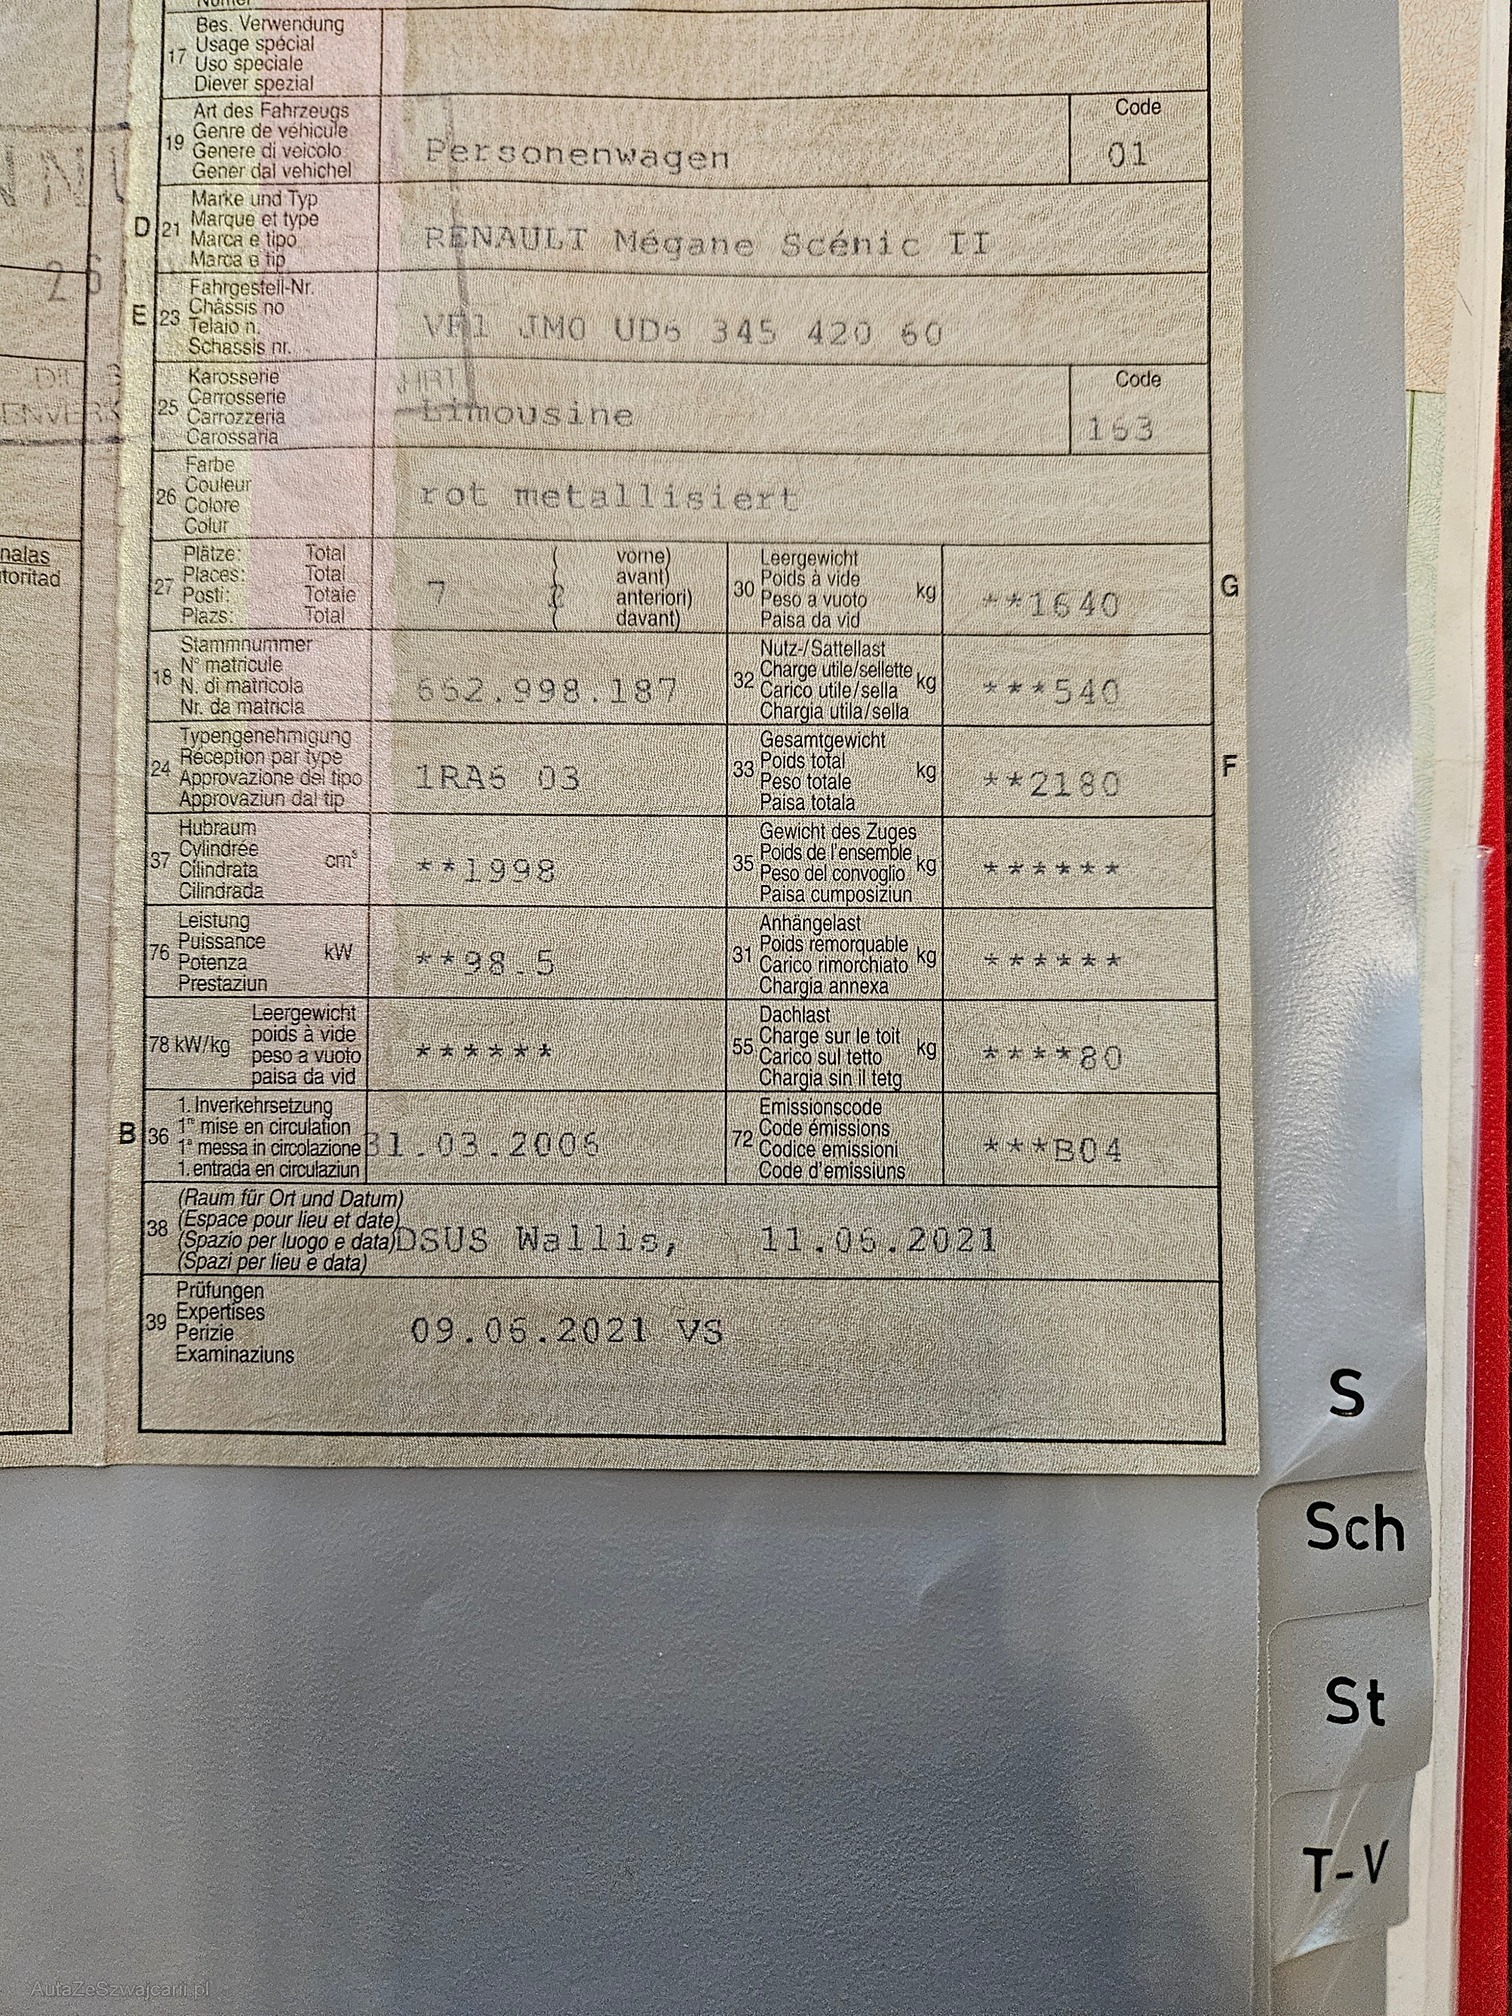 Bes. Verwendung
17 Usage spécial
Uso speciale
Diever spezial
Art des Fahrzeugs Code
19 Genre de véhicule
Genere di veicolo Personenwagen 01
Gener dal vehichel
Marke und Typ
D 21 Marque et type RENAULT Mégane Scénic II
Marca e tipo
Marca e tip
Fahrgestell-Nr.
E 23 Châssis no VF1 JM0 UD6 345 420 60
Telaio n.
Schassis nr.
Karosserie Code
25 Carrosserie Limousine 163
Carrozzeria
Carossaria
Farbe
26 Couleur rot metallisiert
Colore
Colur
Plätze: Total vorne)
27 Places: Total 7 ( 2 avant)
Posti: Totale anteriori)
Plazs: Total davant)
Leergewicht
30 Poids à vide kg **1640 G
Peso a vuoto
Paisa da vid
Stammnummer
18 N° matricule 662.998.187
N. di matricola
Nr. da matricla
Nutz-/Sattellast
32 Charge utile/sellette kg ***540
Carico utile/sella
Chargia utila/sella
Typengenehmigung
24 Réception par type 1RA6 03
Approvazione del tipo
Approvaziun dal tip
Gesamtgewicht
33 Poids total kg **2180 F
Peso totale
Paisa totala
Hubraum
37 Cylindrée cm³ **1998
Cilindrata
Cilindrada
Gewicht des Zuges
35 Poids de l'ensemble kg ******
Peso del convoglio
Paisa cumposiziun
Leistung
76 Puissance kW **98.5
Potenza
Prestaziun
Anhängelast
31 Poids remorquable kg ******
Carico rimorchiato
Chargia annexa
Leergewicht
78 kW/kg poids à vide ******
peso a vuoto
paisa da vid
Dachlast
55 Charge sur le toit kg ****80
Carico sul tetto
Chargia sin il tetg
1. Inverkehrsetzung
B 36 1re mise en circulation 31.03.2006
1a messa in circolazione
1. entrada en circulaziun
Emissionscode
72 Code émissions ***B04
Codice emissioni
Code d'emissiuns
(Raum für Ort und Datum)
38 (Espace pour lieu et date) DSUS Wallis, 11.06.2021
(Spazio per luogo e data)
(Spazi per lieu e data)
Prüfungen
39 Expertises 09.06.2021 VS
Perizie
Examinaziuns
S
Sch
St
T-V
AutaZeSzwajcarii.pl